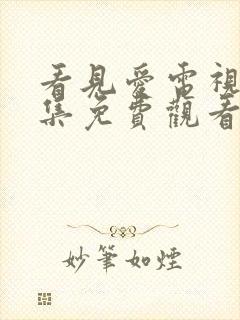 看見愛電視
集免費觀看
妙筆如煙